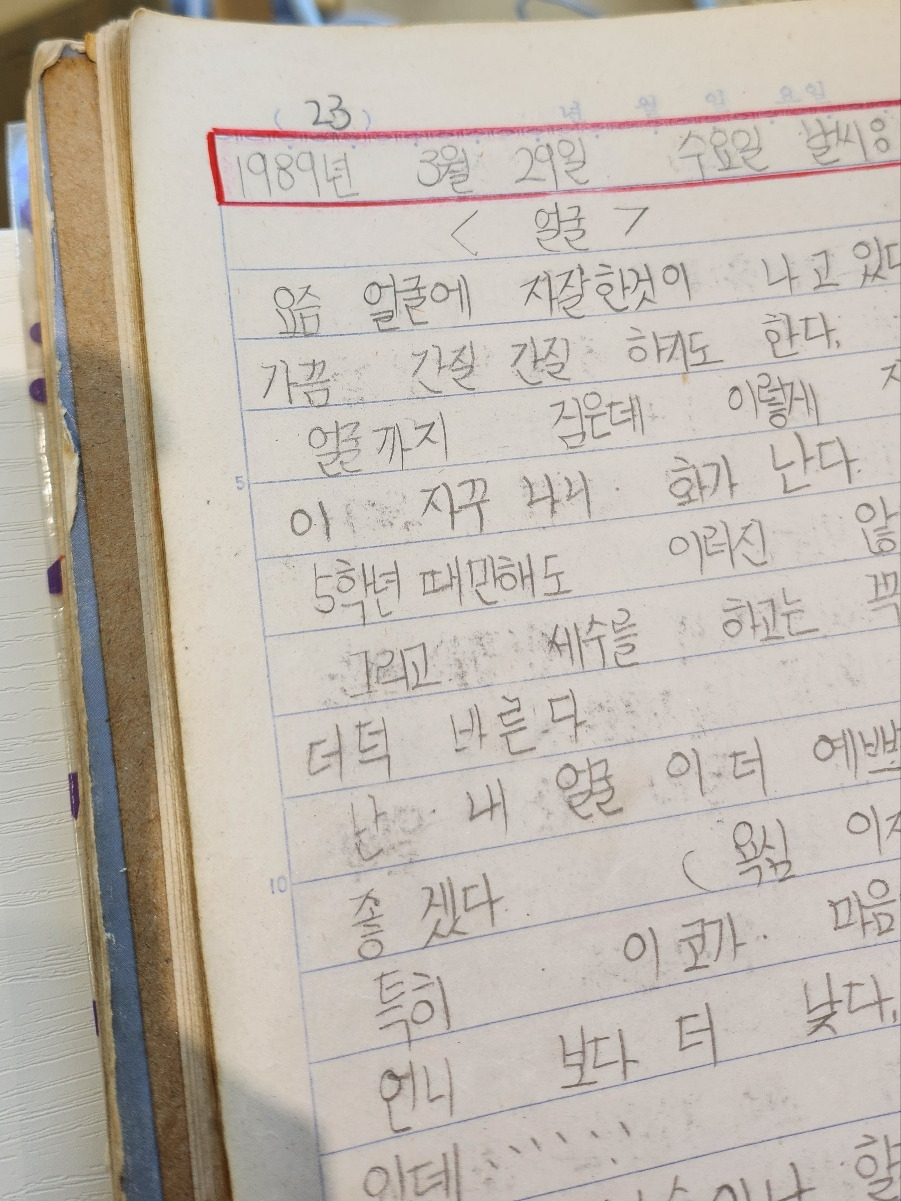 ( 23 ) 년 월 일 요일
1989년 3월 29일 수요일 날씨
< 얼굴 >
요즘 얼굴에 자잘한것이 나고 있다
가끔 간질 간질 하기도 한다.
얼굴까지 검은데 이렇게
5
이 자꾸 나니 화가 난다.
5학년 때만해도 이러진 않
그리고 세수를 하고는 꼭
더덕 바른다
난 내 얼굴 이 더 예뻤
10
좋겠다 ( 욕심 이지
특히 이 코가 마음
언니 보다 더 낮다.
이데 할